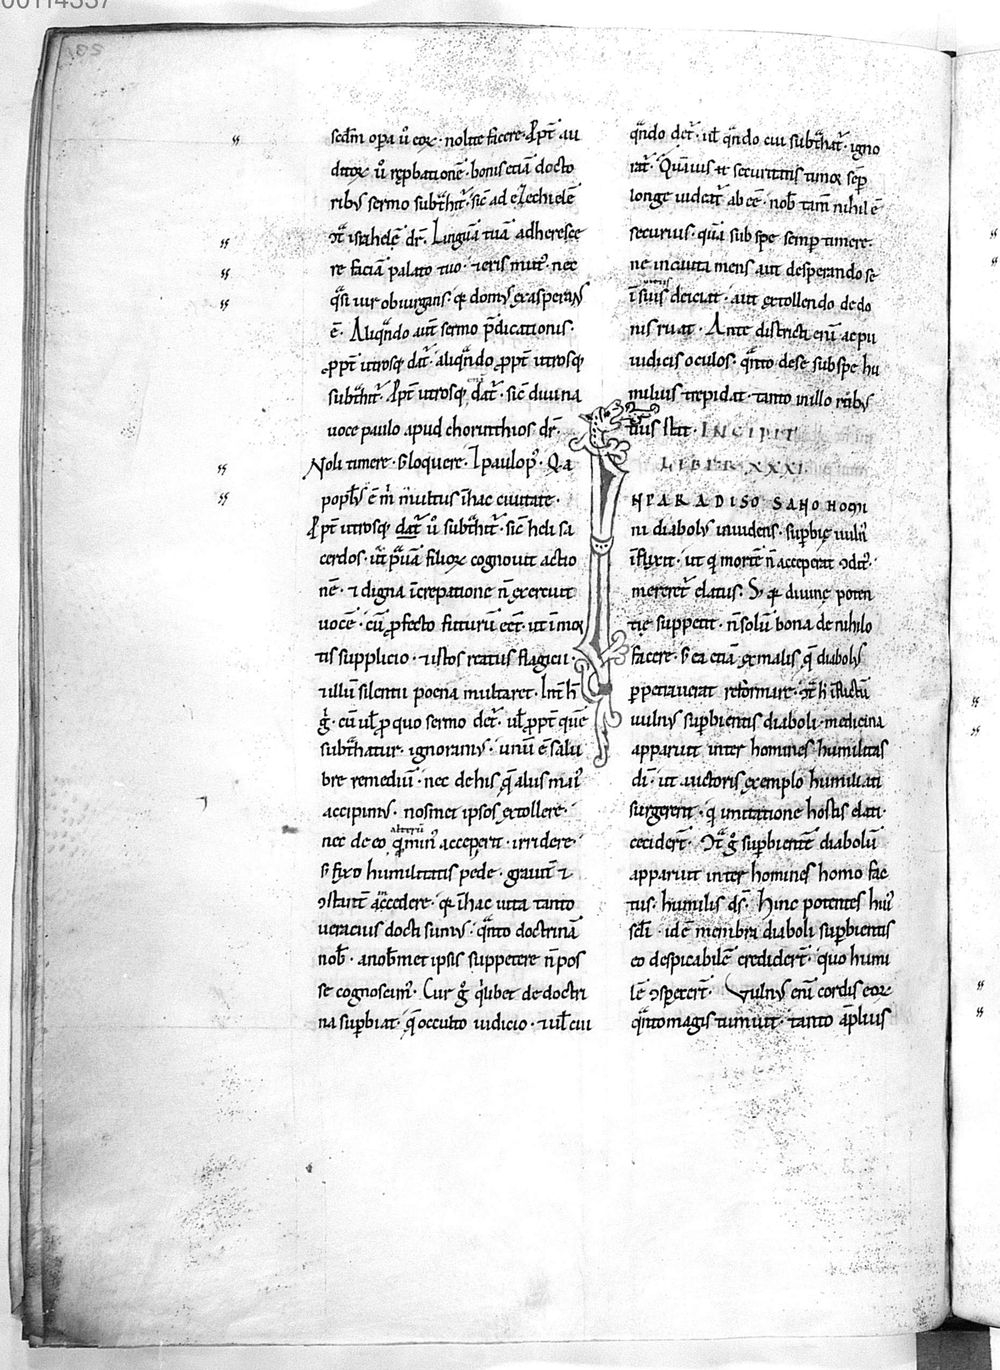 scdm opa ũ eoꝝ· nolite facere· Ꝓpt̃ au
ditoꝝ ũ rep̱bationẽ· bonis etiã docto
ribꝰ sermo subtͣhit̃· sic̃ ad eZechielẽ
ↄͭᷓ israhelẽ dr̃· Linguã tuã adheresce
re faciã palato tuo· ⁊ eris mutꝰ· nec
qͣsi uir obiurgans· qꝛ domꝰ exasperans
ẽ· Aliqͣndo aut̃ sermo p̃dicationis·
ꝓpt̃ utrosq; dat̃· aliqͣndo ꝓpt̃ utrosq;
subtͣhit̃· Ꝓpt̃ utrosq; dat̃· sic̃ diuina
uoce paulo apud chorinthios dr̃·
Noli timere· s; loquere· I paulopꝰ· Qa
popl̃s ẽ m̃ multus ĩhac ciuitate·
Ꝓpt̃ utrosq; dat̃ ũ subtͣhit̃· sic̃ heli sa
cerdos· ut̃ p̱uã filioꝝ cognouit actio
nẽ· ⁊ digna ĩcrepatione ñ exercuit
uocẽ· cũ ꝓfecto futurũ eet̃· ut ĩmor
tis supplicio· ⁊ istos reatus flagicii·
⁊ illũ silentii poena multaret· Int̃ h̃
gͦ· cũ ul̃ ꝓ quo sermo det̃· ul̃ ꝓpt̃ quẽ
subtͣhatur· ignoramꝰ· unũ ẽ salu
bre remediũ· nec de his q̃ aliis maiꝰ
accipimꝰ· nosmet ipsos extollere·
alterũ
nec de eo qͥ minꝰ acceperit· irridere·
s; fixo humilitatis pede· grauit̃ ⁊
ↄstant̃ accedere· qꝛ ĩhac uita tanto
ueracius docti sumꝰ· qͣnto doctrinã
nob̃· anob̃met ipsis suppetere ñ pos
se cognoscimꝰ· Cur gͦ qͥlibet de doctri
na sup̱biat· q̃ occulto iudicio· ⁊ ul̃ cui
qͣndo det̃· ul̃ qͣndo cui subtͣhat̃· igno
rat̃· Quãuis et securitatis timor sep̱
longe uideat̃ ab eẽ· nob̃ tam̃ nihil ẽ
securius· quã sub spe semp̱ timere·
ne incauta mens aut desperando se
ĩ suis deiciat· aut extollendo de do
nis ruat· Ante districti eni̇̃ ac pii
iudicis oculos· qͣnto de se sub spe hu
milius trepidat· tanto in illo robꝰ
tius stat· INCIPIT
LIBER XXXI·
INPARADISO SANO HOMI
ni diabolꝰ inuidens· sup̱bię uulnꝰ
ĩflixit· ut qͥ mortẽ ñ acceperat ↄditꝰ·
mereret̃ elatus· S; qꝛ diuinę poten
tię suppetit· ñ solũ bona de nihilo
facere· s; ea etiã ex malis q̃ diabolꝰ
p̱petrauerat reformare· ↄͭᷓ h̃ ĩflictũ
uulnꝰ sup̱bientis diaboli· medicina
apparuit inter homines humilitas
di̇̃· ut auctoris exemplo humiliati
surgerent· qͥ imitatione hostis elati·
cecidert̃· ↄͭᷓ gͦ sup̱bientẽ diabolũ
apparuit inter homines homo fac
tus· humilis ds̃· Hinc potentes huiꝰ
scl̃i· id ẽ membra diaboli sup̱bientis
eo despicabilẽ credidert̃· quo humi
lẽ ↄspexert̃· Vulnꝰ eni̇̃ cordis eoꝝ
qͣnto magis tumuit· tanto ãplius